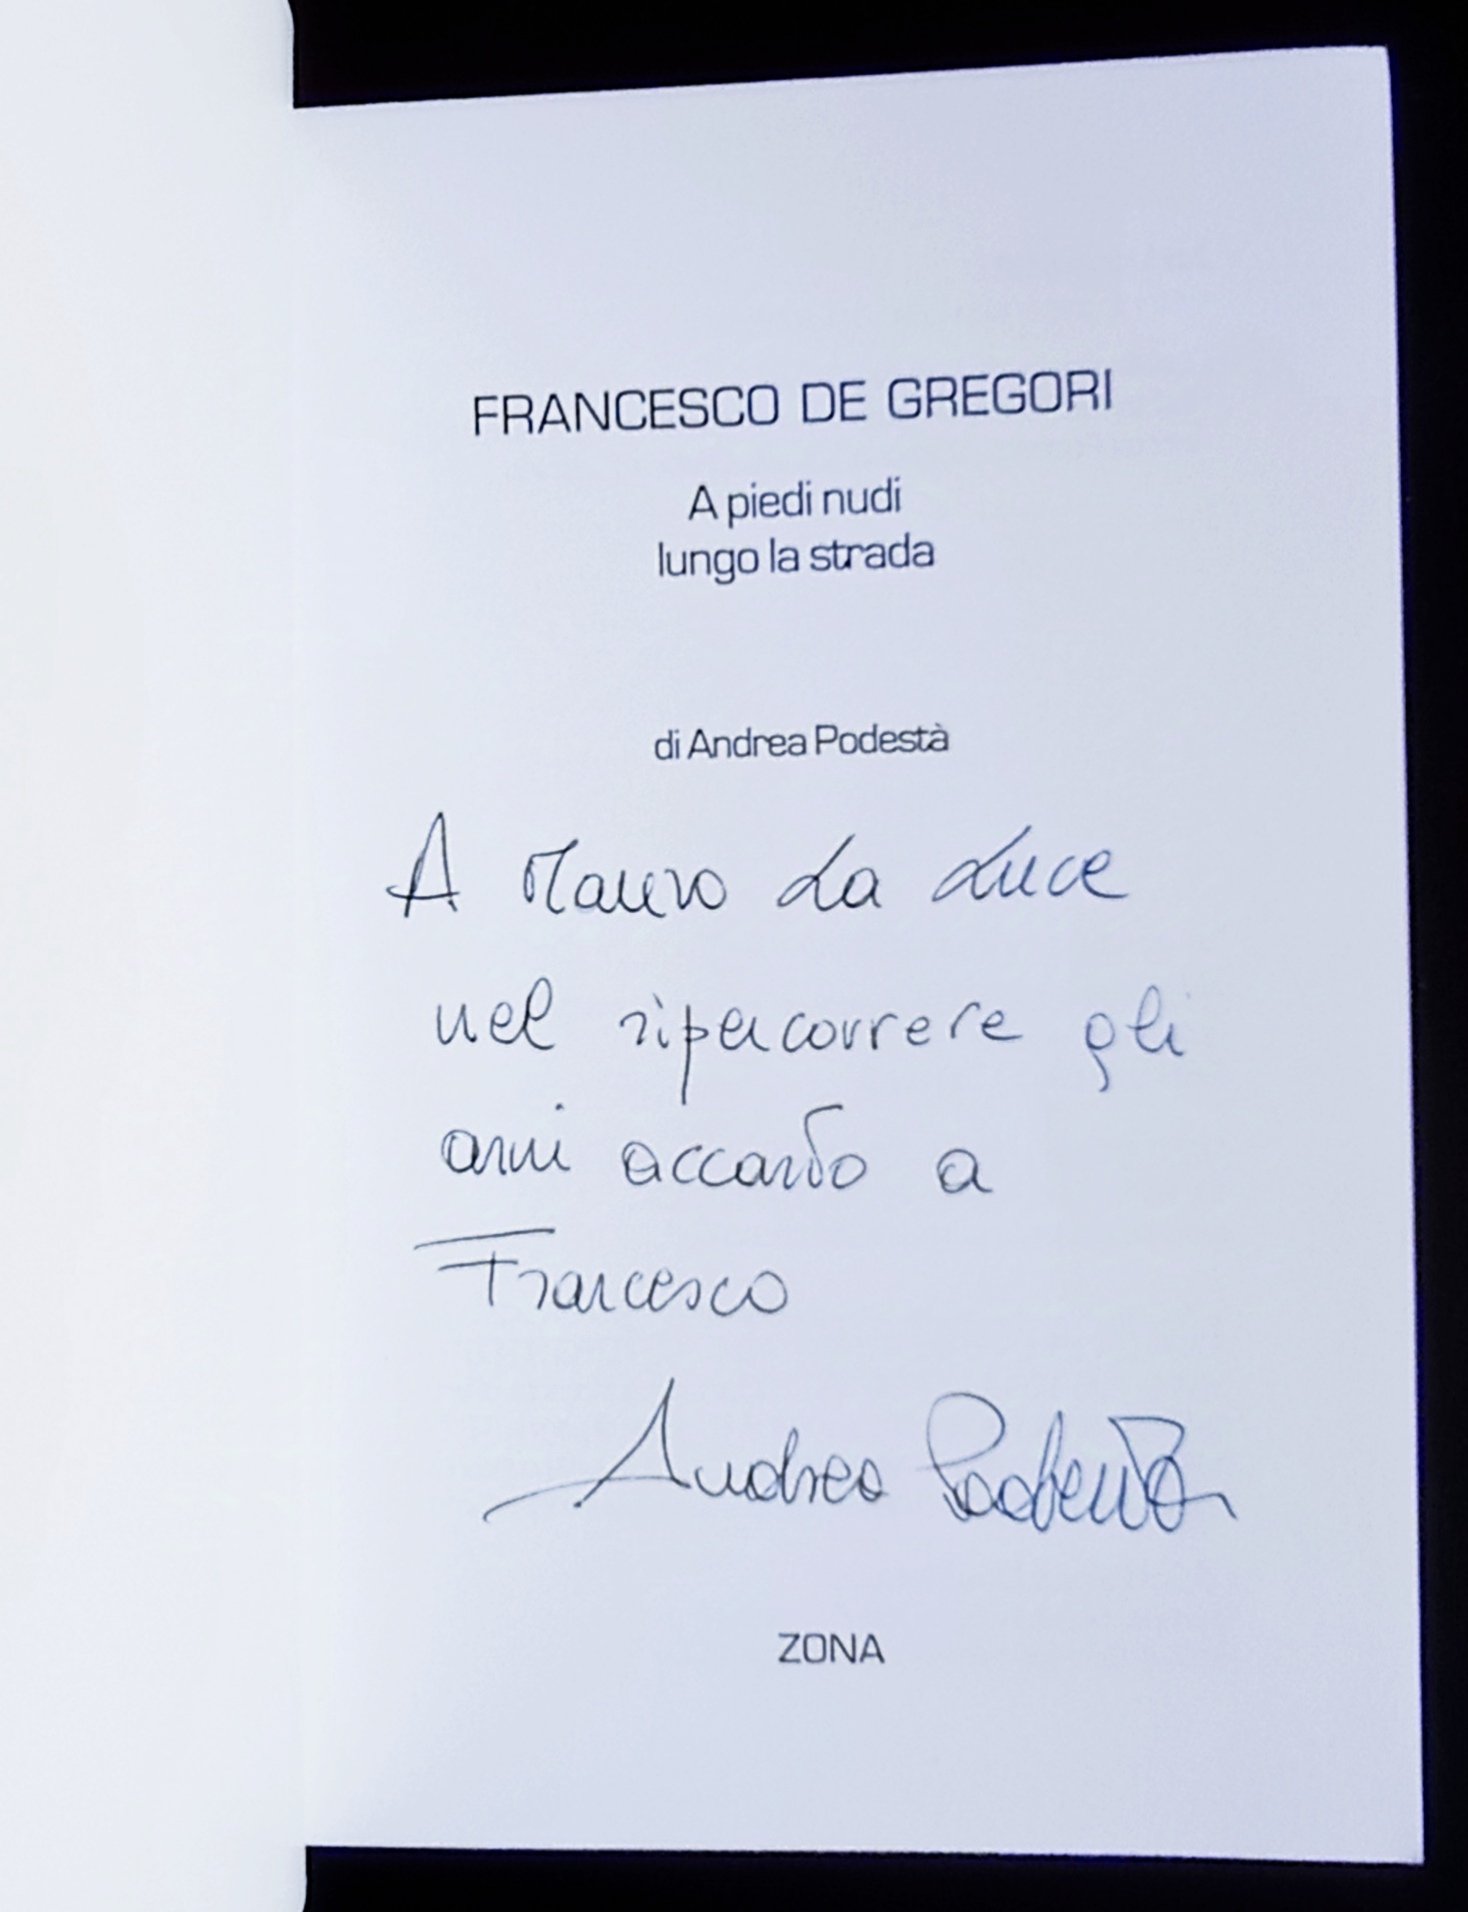 FRANCESCO DE GREGORI
A piedi nudi
lungo la strada
di Andrea Podestà
A Mauro La Luce
nel ripercorrere gli
anni accanto a
Francesco
Andrea Podestà
ZONA